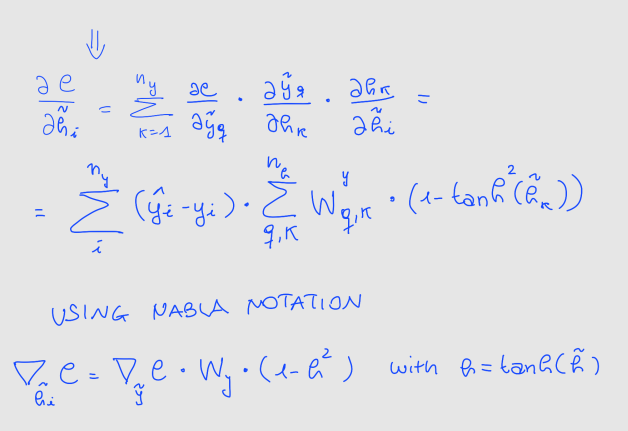 ⇓
∂e/∂h̃ᵢ = Σ_{κ=1}^{n_y} ∂e/∂ỹ_q · ∂ỹ_q/∂h_κ · ∂h_κ/∂h̃ᵢ =
= Σ_i^{n_y} (ŷᵢ - yᵢ) · Σ_{q,κ}^{n_h} W^y_{q,κ} · (1 - tanh²(h̃_κ))
USING NABLA NOTATION
∇_{h̃ᵢ} e = ∇_ỹ e · W_y · (1 - h²) with h = tanh(h̃)